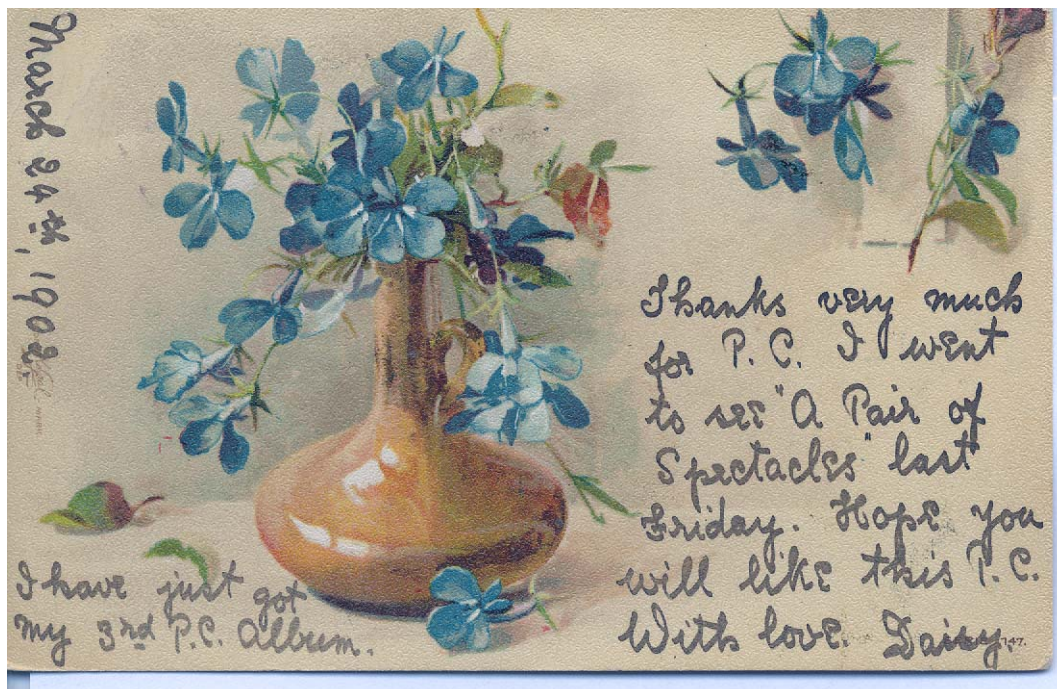 March 24th, 1902
Thanks very much
for P.C. I went
to see "A Pair of
Spectacles" last
Friday. Hope you
will like this P.C.
With love. Daisy.
I have just got
my 3rd P.C. Album.